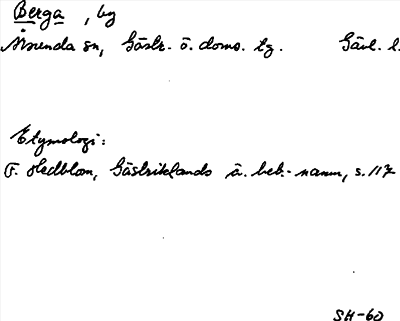 Berga, by
Årsunda sn, Gästr. ö. doms. tg. Gävl. l.
Etymologi:
F. Hedblom, Gästriklands ä. beb.-namn, s. 117
SH-60